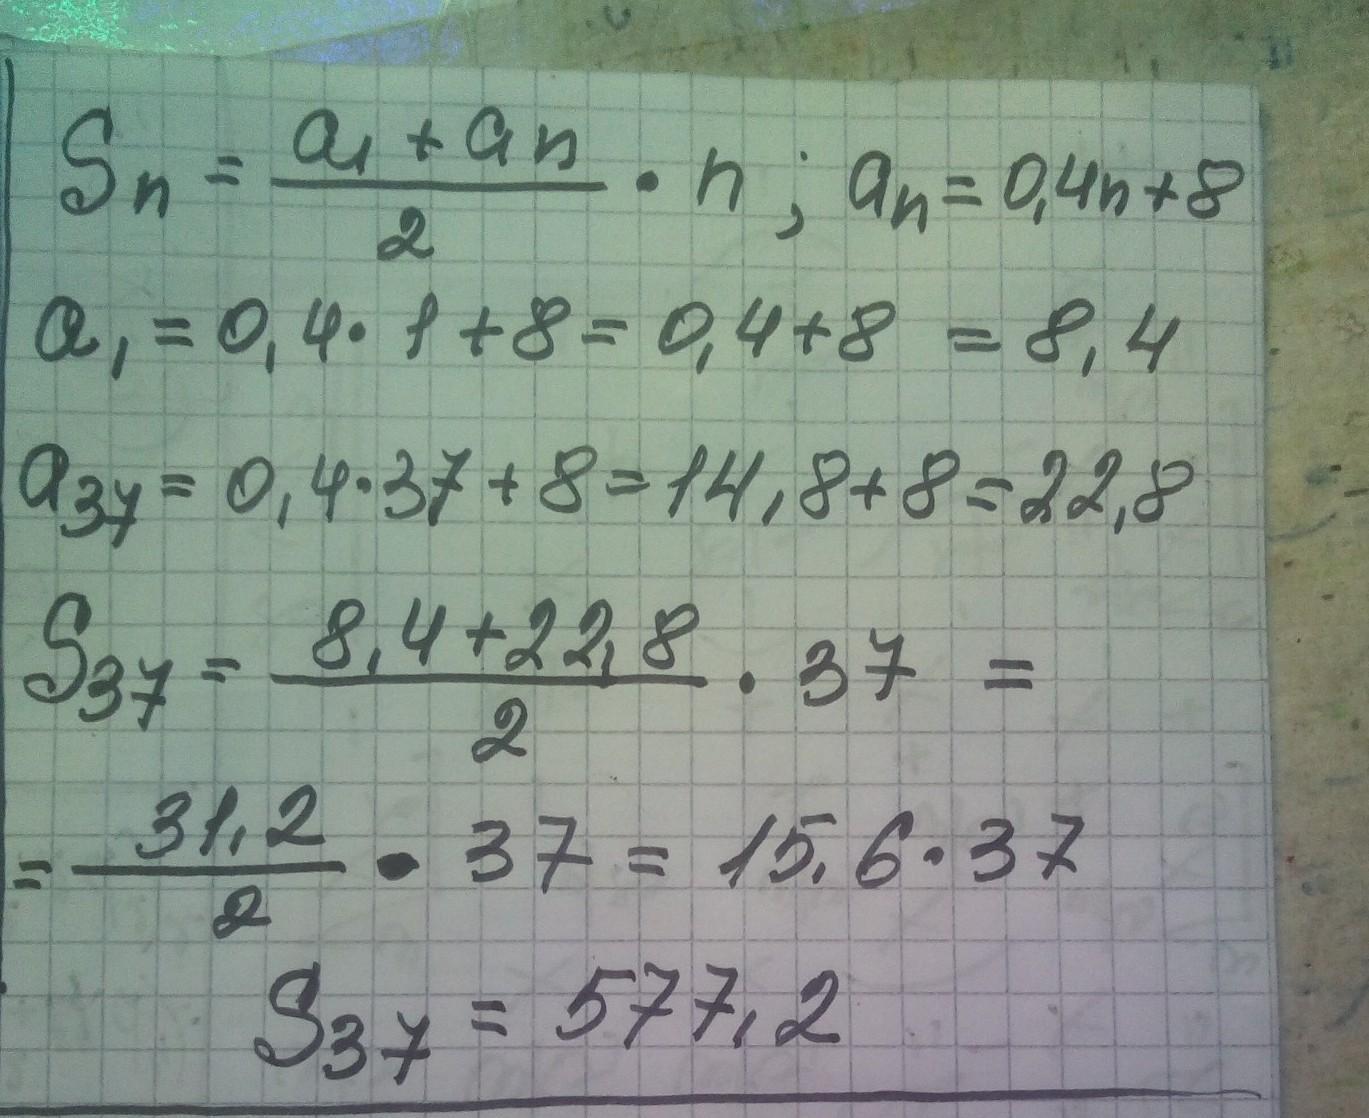 Sn = (a1 + an)/2 · n ; an = 0,4n+8
a1 = 0,4 · 1 + 8 = 0,4+8 = 8,4
a37 = 0,4·37 + 8 = 14,8+8 = 22,8
S37 = (8,4+22,8)/2 · 37 =
= 31,2/2 · 37 = 15,6·37
S37 = 577,2